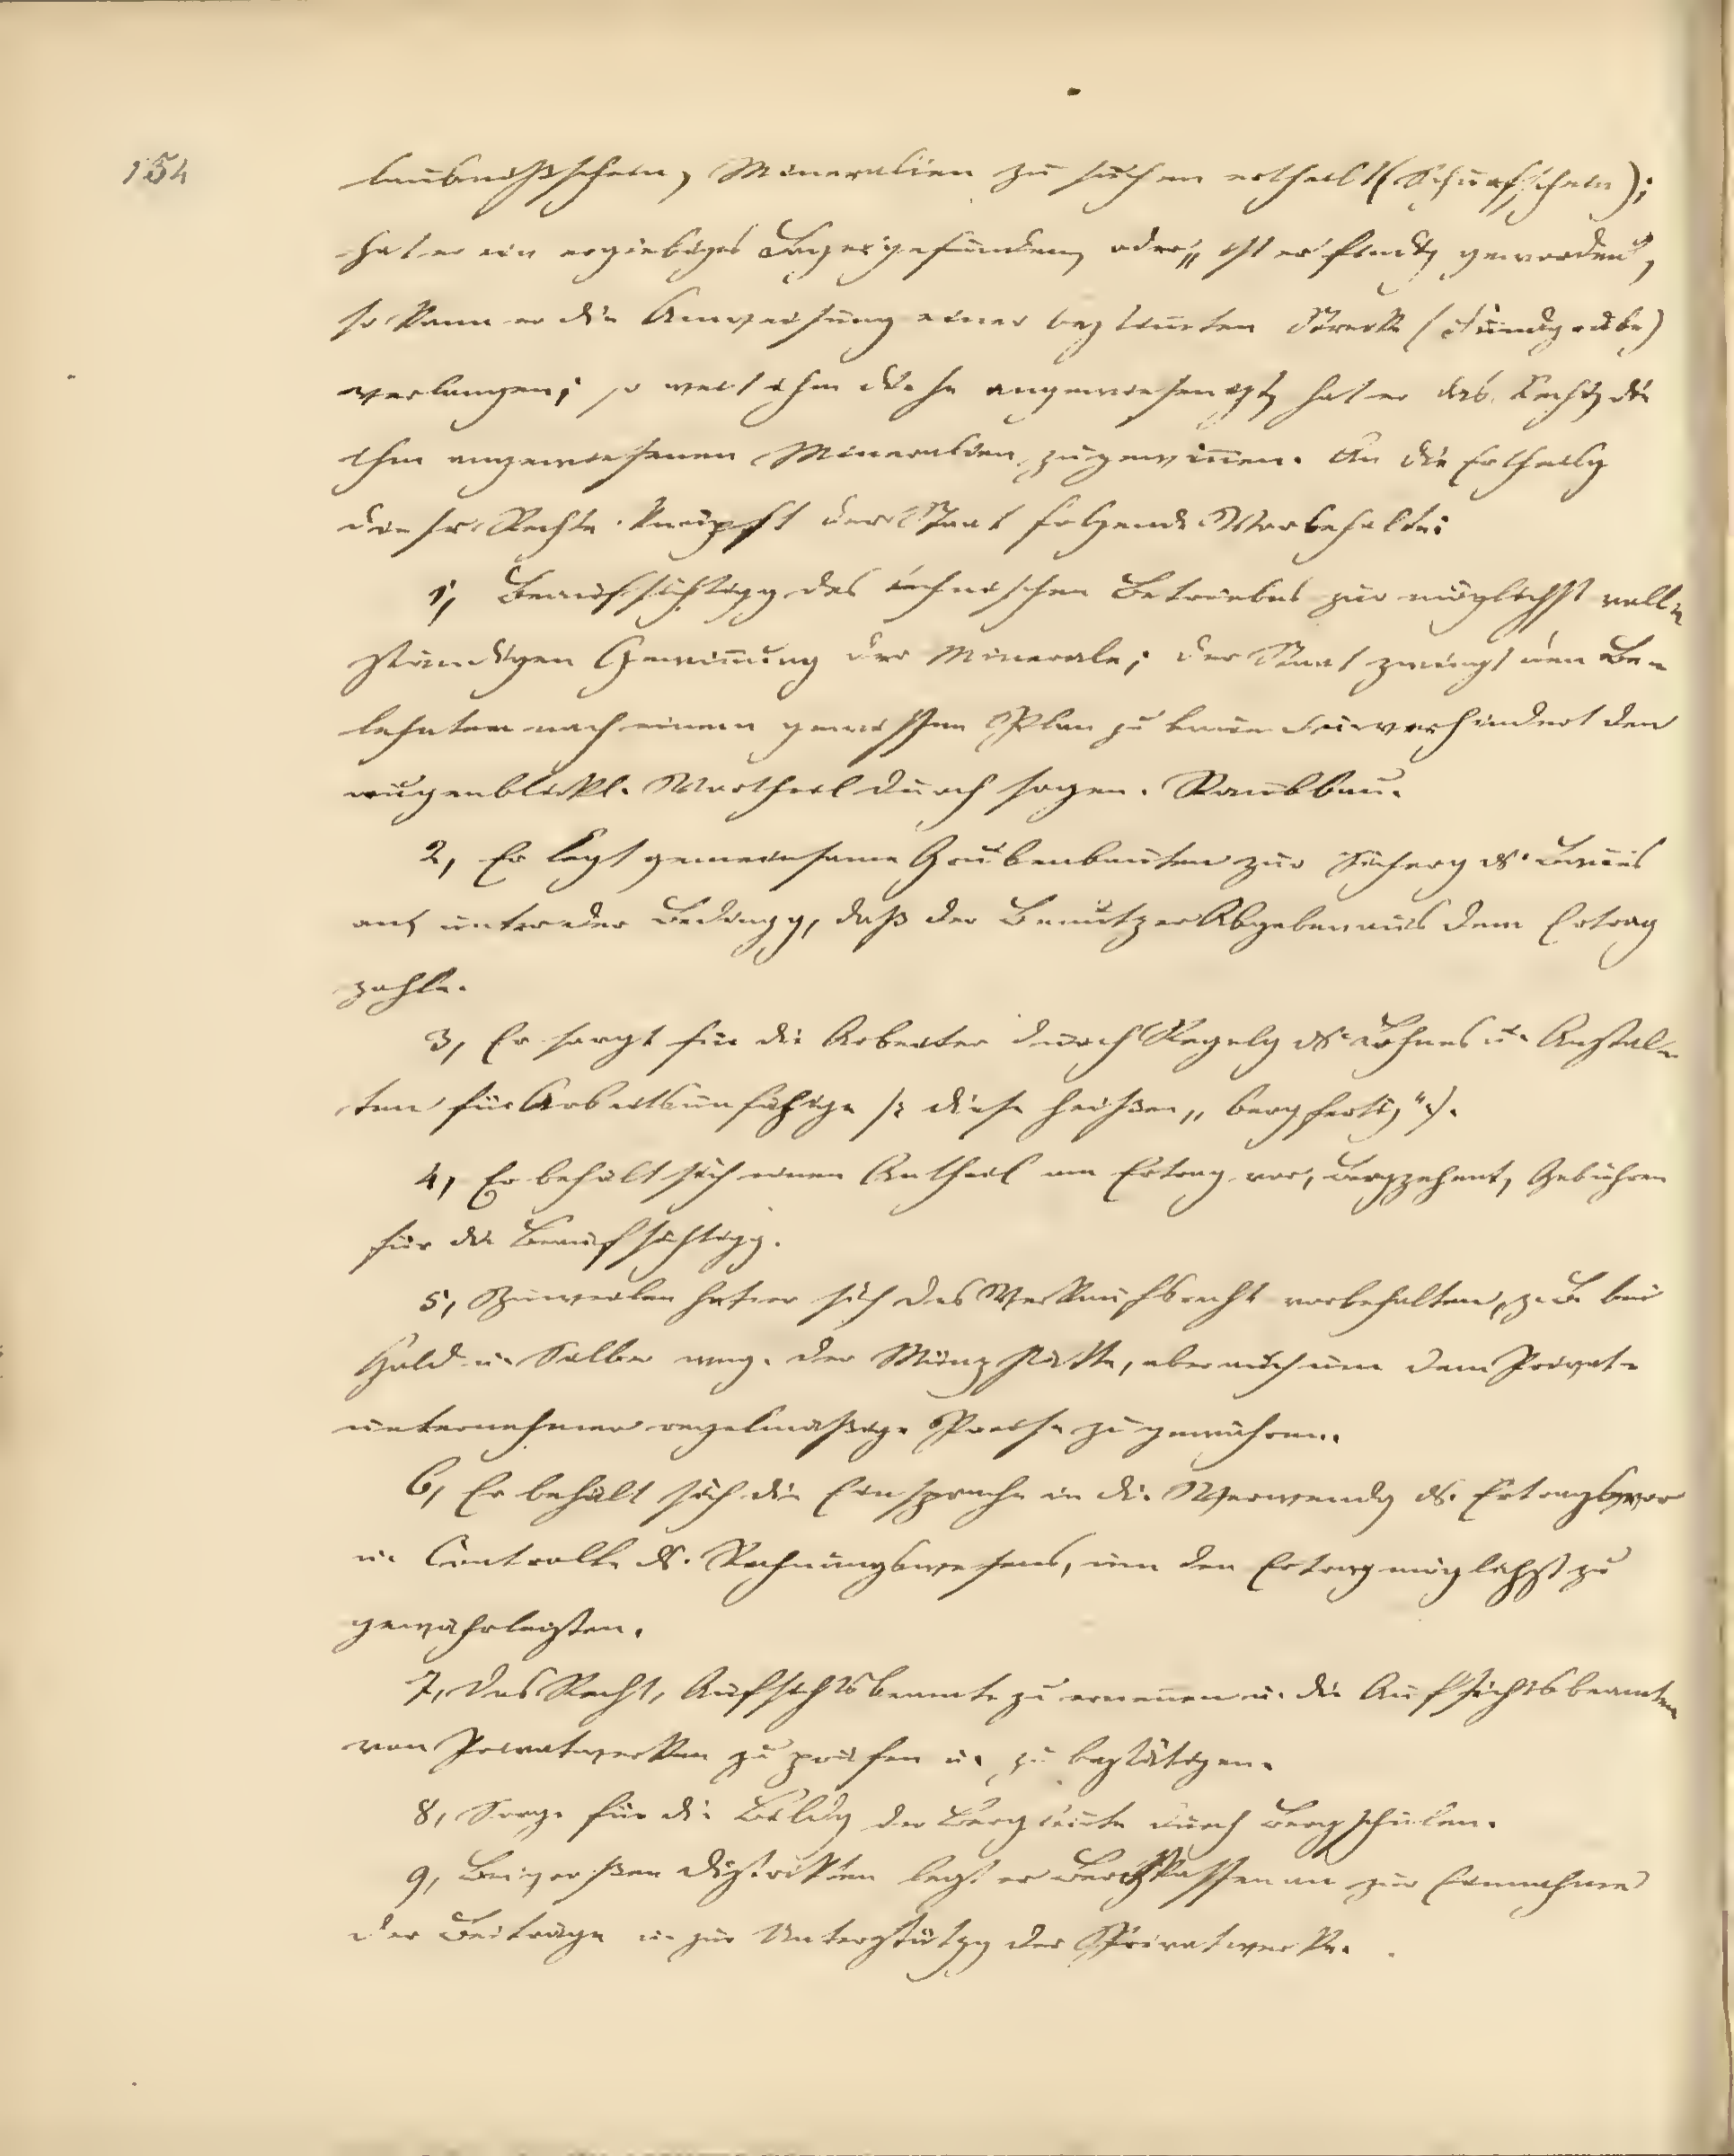 154
laubnißschein, Mineralien zu suchen ertheilt (Schurfschein);
hat er ein ergiebiges Lager gefunden, oder „ist er fündig geworden",
so kann er die Anweisung einer bestimmten Strecke (Fundgrube)
verlangen; so weit ihm diese angewiesen ist, hat er das Recht, die
ihm angewiesenen Mineralien zu gewinnen. An die Ertheilg
dieser Rechte knüpft der Staat folgende Vorbehalte:
1, Beaufsichtigg des technischen Betriebes zur möglichst voll-
ständigen Gewinnung der Minerale; der Staat zwingt den Be-
lehnten nach einem gewissen Plan zu bauen u. verhindert den
augenblickl. Vortheil durch sogen. Raubbau.
2, Er legt gemeinsame Grubenbauten zur Sicherg ds. Baues
an, unter der Bedingg, daß der Benützer Abgaben aus dem Ertrag
zahle.
3, Er sorgt für die Arbeiter durch Regelg ds. Lohnes u. Anstal-
ten für Arbeitsunfähige /: diese heißen „bergfertig" :/.
4, Er behält sich einen Antheil am Ertrag vor, Bergzehent, Gebühren
für die Beaufsichtigg.
5, Zuweilen hat er sich das Verkaufsrecht vorbehalten, z. B. bei
Gold u. Silber weg. der Münzstätte, aber auch um dem Privat-
unternehmer regelmäßige Preise zu gewähren.
6, Er behält sich die Einsprache in die Verwendg ds. Ertrages vor
u. Controlle ds. Rechnungswesens, um den Ertrag möglichst zu
gewährleisten.
7, Das Recht, Aufsichtsbeamte zu ernennen u. die Aufsichtsbeamten
von Privatwerken zu prüfen u. zu bestätigen.
8, Sorge für die Bildg der Bergleute durch Bergschulen.
9, Bei großen Distrikten legt er Bergkassen an zur Einnahme
der Beiträge u. zur Unterstützg der Privatwerke.